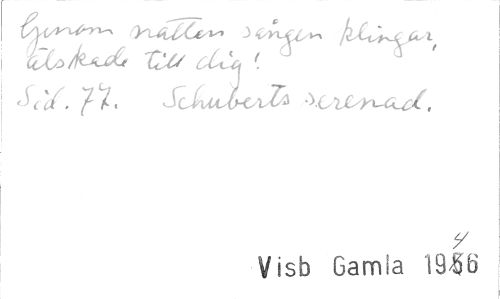 Genom natten sången klingar,
älskade till dig!
Sid. 77. Schuberts serenad.
Visb Gamla 1946